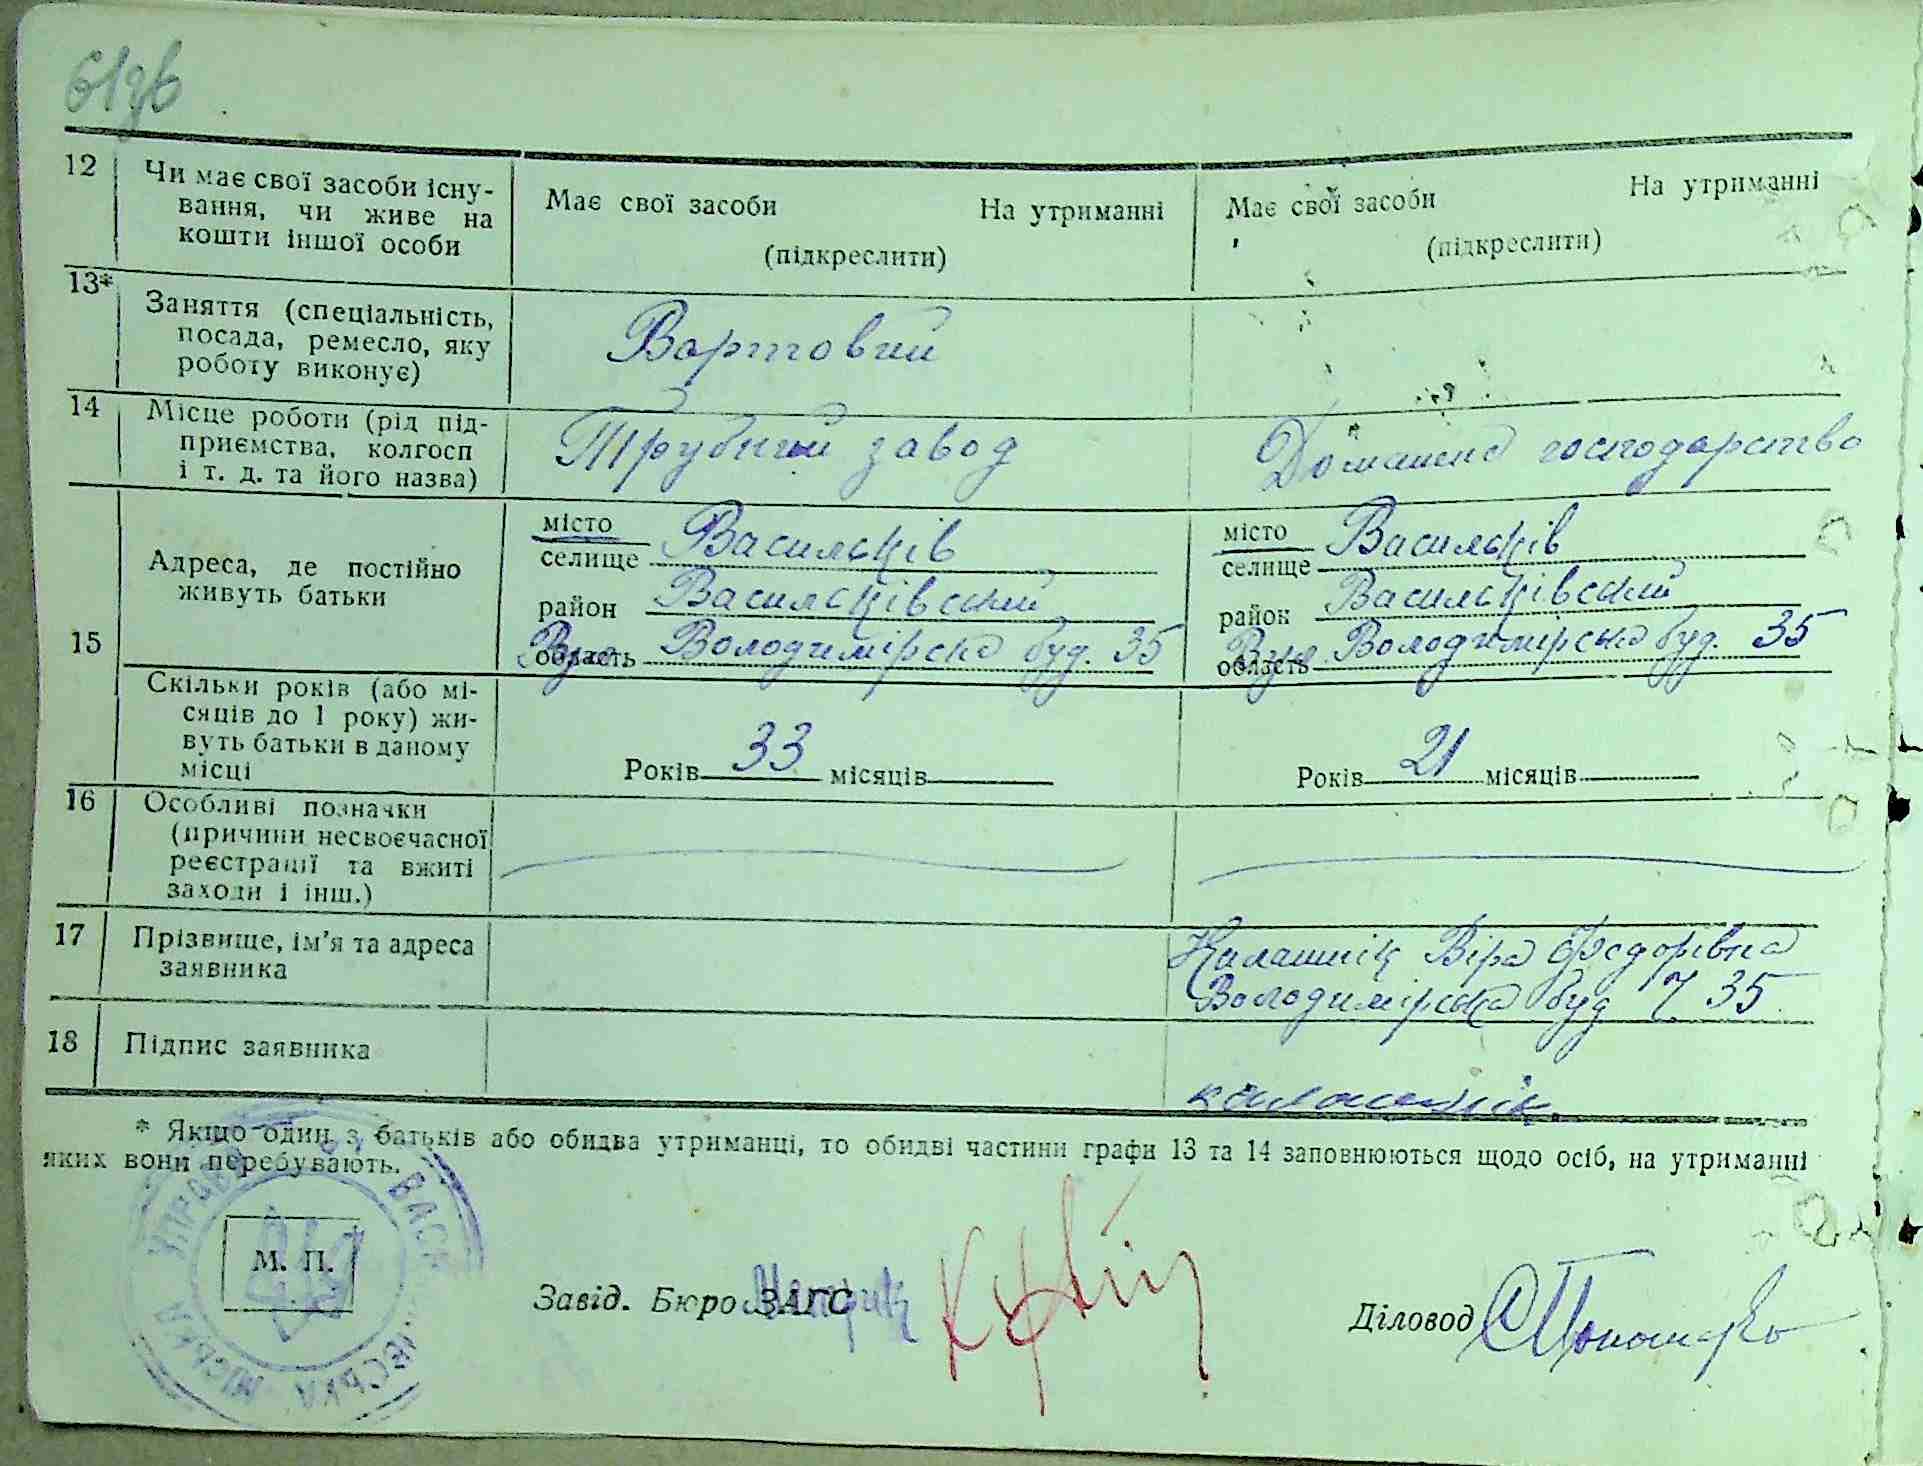 61зв
12 Чи має свої засоби існу-
вання, чи живе на
кошти іншої особи
Має свої засоби На утриманні
(підкреслити)
Має свої засоби На утриманні
(підкреслити)
13* Заняття (спеціальність,
посада, ремесло, яку
роботу виконує)
Вартовий
14 Місце роботи (рід під-
приємства, колгосп
і т. д. та його назва)
Трубний завод
Домашнє господарство
15 Адреса, де постійно
живуть батьки
місто Васильків
селище
район Васильківский
область Вул. Володимірска буд. 35
місто Васильків
селище
район Васильківский
область Вул. Володимірська буд. 35
Скільки років (або мі-
сяців до 1 року) жи-
вуть батьки в даному
місці
Років 33 місяців
Років 21 місяців
16 Особливі позначки
(причини несвоєчасної
реєстрації та вжиті
заходи і інш.)
17 Прізвище, ім'я та адреса
заявника
Калашнік Віра Федорівна
Володимірська буд 35
18 Підпис заявника
калашнік
* Якщо один з батьків або обидва утриманці, то обидві частини графи 13 та 14 заповнюються щодо осіб, на утриманні
яких вони перебувають.
М. П.
МІСЬКА УПРАВА
Завід. Бюро ЗАГС Метрик
Діловод